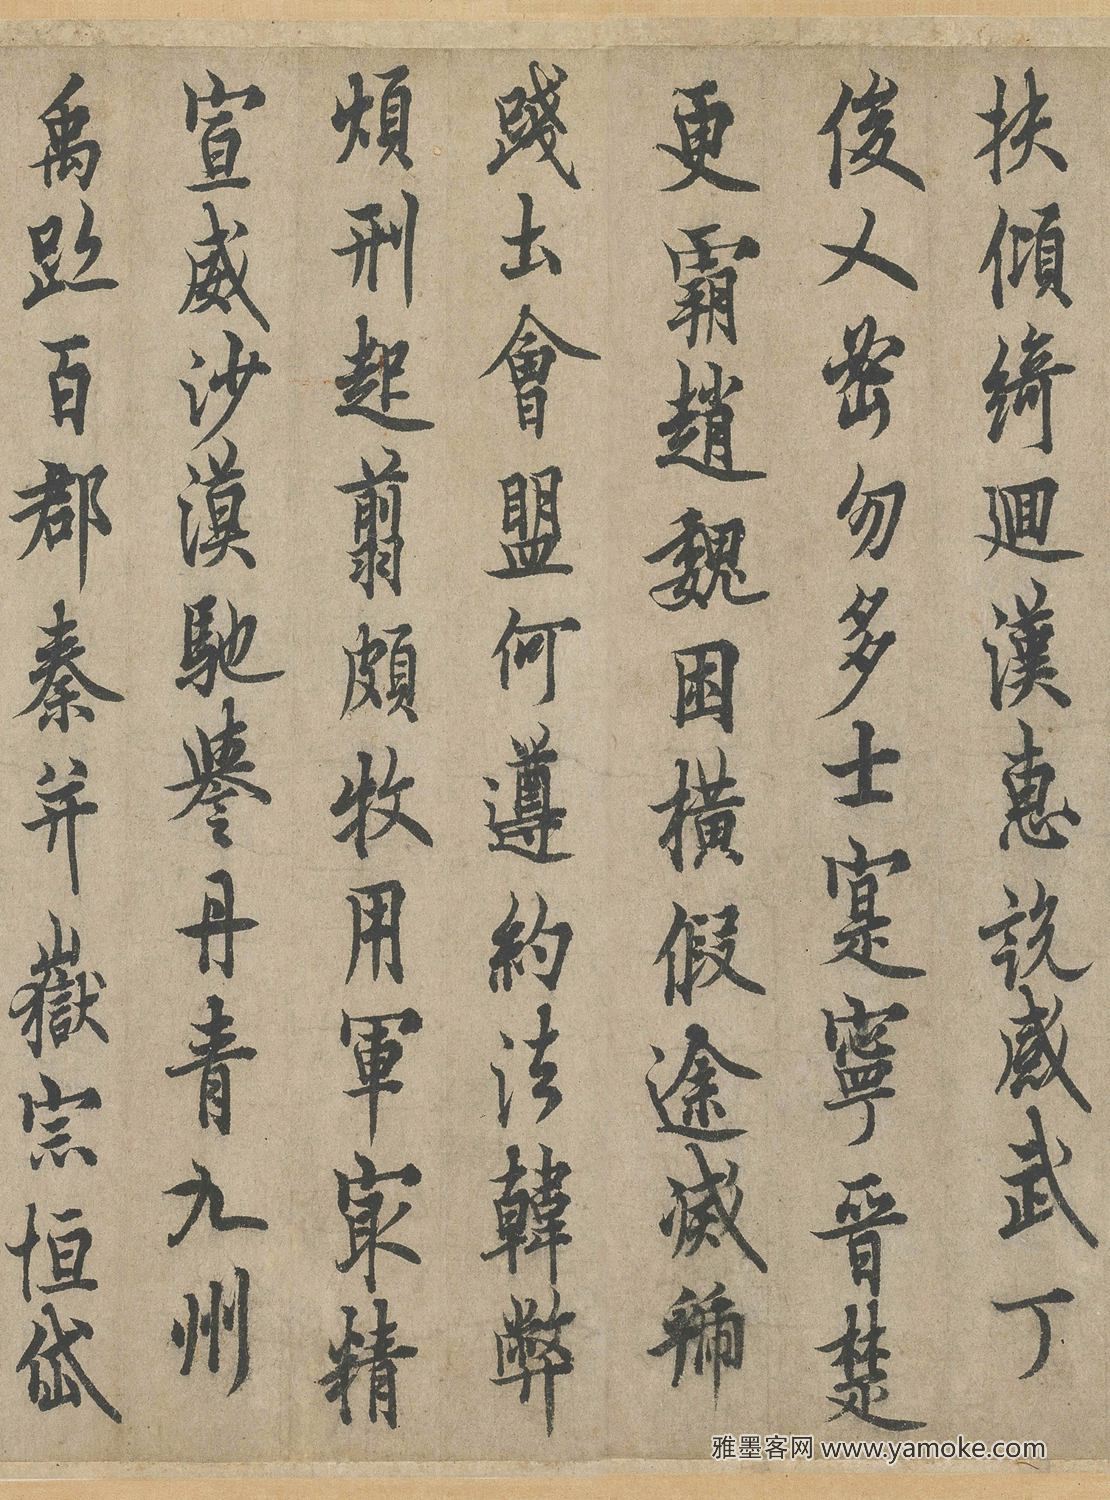 扶傾綺迴漢惠說感武丁
俊乂密勿多士寔寧晉楚
更霸趙魏困橫假途滅虢
踐土會盟何遵約法韓弊
煩刑起翦頗牧用軍㝡精
宣威沙漠馳譽丹青九州
禹跡百郡秦并嶽宗恒岱
雅墨客网 www.yamoke.com